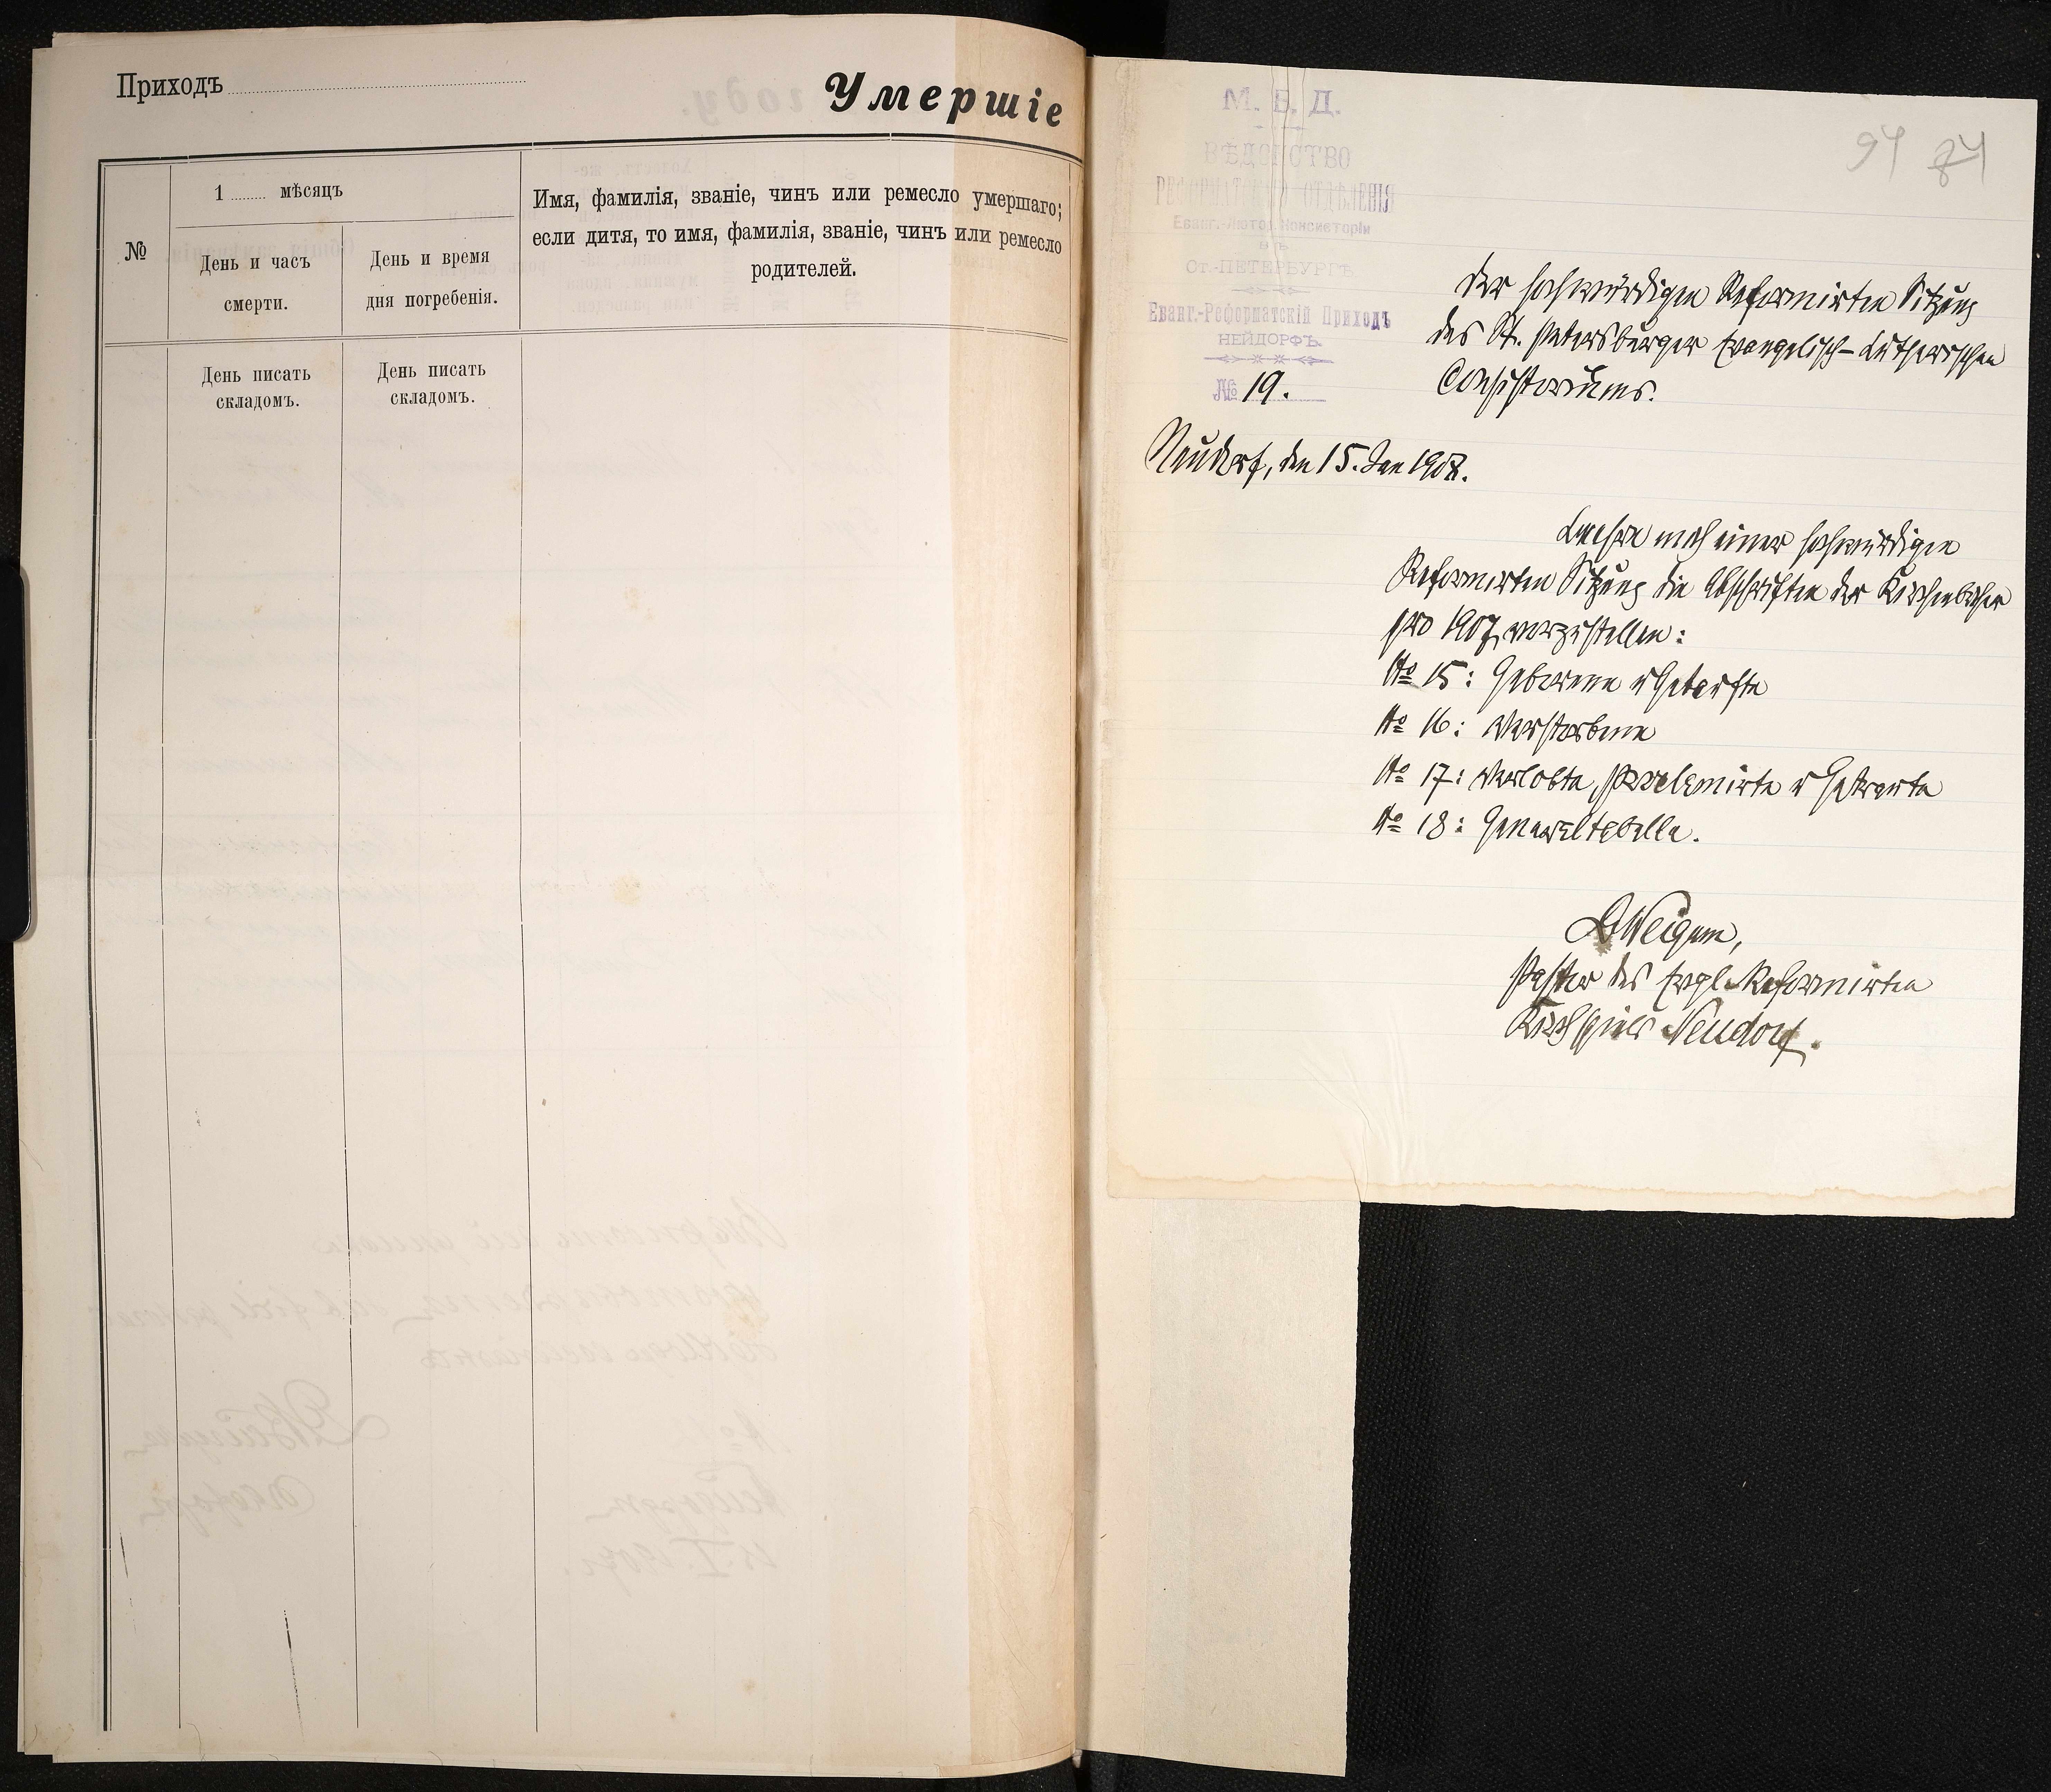 Приходъ
Умершіе
№
1 мѣсяцъ
День и часъ
смерти.
День и время
дня погребенія.
Имя, фамилія, званіе, чинъ или ремесло умершаго;
если дитя, то имя, фамилія, званіе, чинъ или ремесло
родителей.
День писать
складомъ.
День писать
складомъ.
94 84
М. В. Д.
ВѢДОМСТВО
РЕФОРМАТСКАГО ОТДѢЛЕНІЯ
Еванг.-Лютер. Консисторіи
въ
Ст.-ПЕТЕРБУРГѢ.
Еванг.-Реформатскій Приходъ
НЕЙДОРФЪ.
№ 19.
Der hochwürdigen Reformirten Sitzung
des St. Petersburger Evangelisch-Lutherischen
Consistoriums.
Neudorf, den 15. Jan 1908.
Beehre mich einer hochwürdigen
Reformirten Sitzung die Abschriften der Kirchenbücher
pro 1907 vorzustellen:
No 15: Geborene u Getaufte
No 16: Verstorbene
No 17: Verlobte, Proclamirte u Getraute
No 18: Generaltabelle.
Weigum,
Pastor des Evgl.-Reformirten
Kirchspiels Neudorf.